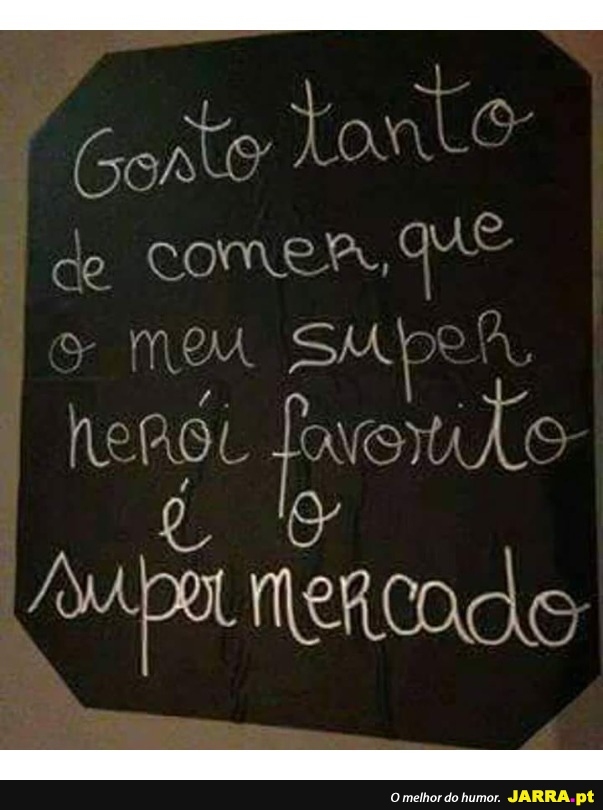 Gosto tanto
de comer, que
o meu super
herói favorito
é o
super mercado
O melhor do humor. JARRA.pt